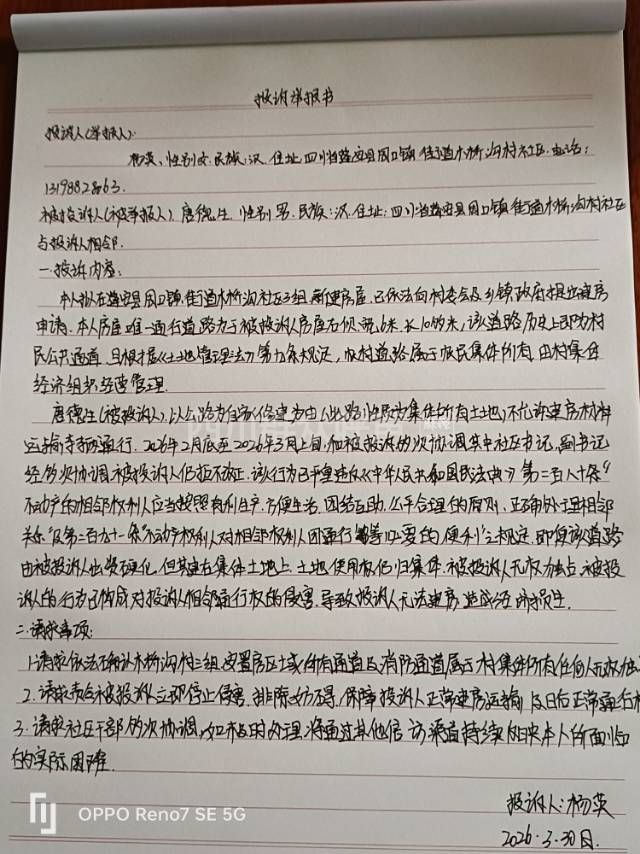 投诉举报书
投诉人(举报人):
杨英、性别女.民族:汉.住址四川省蓬安县周口镇街道木桥沟村社区.电话:
1319882863.
被投诉人(被举报人).唐德生.性别男.民族:汉.住址:四川省蓬安县周口镇街道木桥沟村社区
与投诉人相邻.
一.投诉内容:
本人拟在蓬安县周口镇.街道木桥沟社区3组.新建房屋.已依法向村委会及乡镇政府提出建房
申请.本人房屋唯一通行道路为于被投诉人房屋右侧.宽6米.长10多米,该道路历史上即为村
民公共通道.且根据《土地管理法》第九条规定,农村道路属于农民集体所有.由村集体
经济组织经营管理.
唐德生(被投诉人).以公路为自家修建为由(此路性质为集体所有土地)不允许建房材料
运输车辆通行.2026年2月底至2026年3月上旬.和被投诉人多次协调其中社区书记.副书记
经多次协调.被投诉人仍拒不改正.该行为已严重违反《中华人民共和国民法典》第二百八十条“
不动产的相邻权利人应当按照有利生产.方便生活.团结互助.公平合理的原则.正确处理相邻
关系”及第二百九十一条“不动产权利人对相邻权利人因通行等必要的便利”之规定.即使该道路
由被投诉人出资硬化.但其建在集体土地上.土地使用权仍归集体.被投诉人无权独占.被投
诉人的行为已构成对投诉人相邻通行权的侵害.导致投诉人无法建房.造成经济损失.
二.请求事项:
1.请求依法确认木桥沟村三组.安置房区域所有通道及消防通道属于村集体所有任何人无权独
2.请求责令被投诉人立即停止侵害.排除妨碍.保障投诉人正常建房运输及日后正常通行权
3.请求社区干部多次协调,如不及时处理.将通过其他信访渠道持续反映本人所面临
的实际困难.
投诉人:杨英
2026.3.30日.
OPPO Reno7 SE 5G